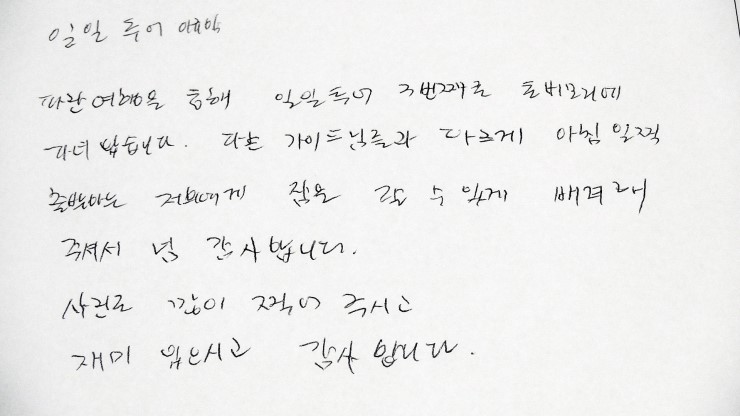 일일 투어
파란여행을 통해 일일투어 3번째로 토비모리에
다녀 왔습니다. 다른 가이드님들과 다르게 아침 일찍
출발하는 저희에게 잠을 잘 수 있게 배려해
주셔서 넘 감사합니다.
사진도 많이 찍어 주시고
재미 있으시고 감사합니다.